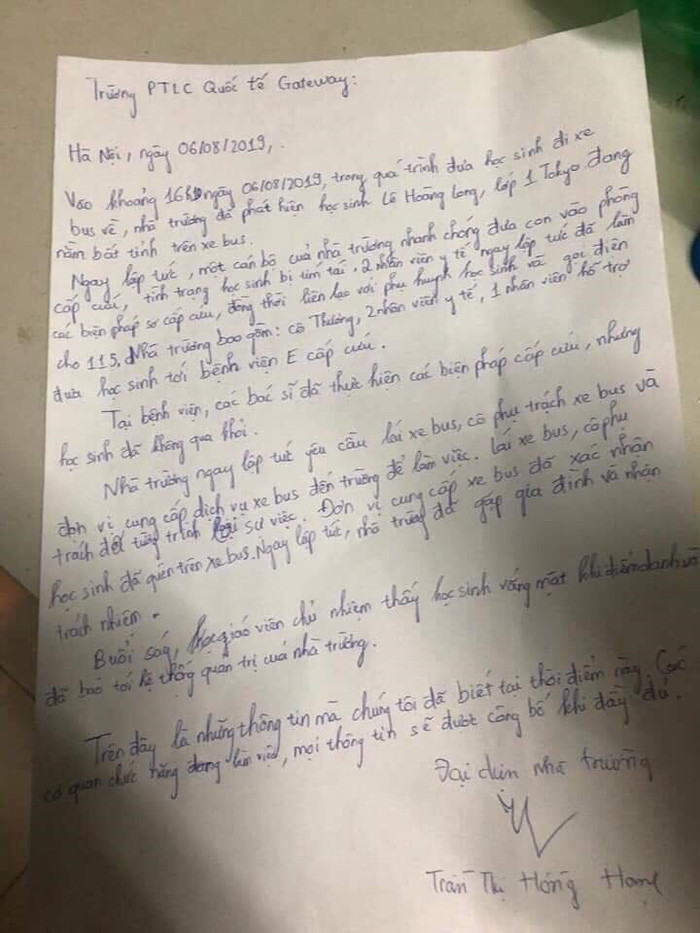 Trường PTLC Quốc tế Gateway:
Hà Nội, ngày 06/08/2019,.
Vào khoảng ngày 06/08/2019, trong quá trình đưa học sinh đi xe
bus về, nhà trường đã phát hiện học sinh Lê Hoàng Long, lớp 1 Tokyo đang
nằm bất tỉnh trên xe bus.
Ngay lập tức, một cán bộ cuả nhà trường nhanh chóng đưa con vào phòng
cấp cứu, tình trạng học sinh bị tím tái, 2 nhân viên y tế ngay lập tức đã làm
các biện pháp sơ cấp cứu, đồng thời liên lạc với phụ huynh học sinh và gọi điện
cho 115. Nhà trường bao gồm: cô Thương, 2 nhân viên y tế, 1 nhân viên hỗ trợ
đưa học sinh tới bệnh viện E cấp cứu.
Tại bệnh viện, các bác sĩ đã thực hiện các biện pháp cấp cứu, nhưng
học sinh đã không qua khỏi.
Nhà trường ngay lập tức yêu cầu lái xe bus, cô phụ trách xe bus và
đơn vị cung cấp dịch vụ xe bus đến trường để làm việc. Lái xe bus, cô phụ
trách đã tường trình sự việc. Đơn vị cung cấp xe bus đã xác nhận
học sinh đã quên trên xe bus. Ngay lập tức, nhà trường đã gặp gia đình và nhận
trách nhiệm.
Buổi ság, giáo viên chủ nhiệm thấy học sinh vắng mặt khi điểm danh và
đã báo tới hệ thống quản trị cuả nhà trường.
Trên đây là những thông tin mà chúng tôi đã biết tại thời điểm này. Các
cơ quan chức năng đang làm việc, mọi thông tin sẽ được công bố khi đầy đủ.
Đại diện nhà trường
Trần Thị Hồng Hạnh